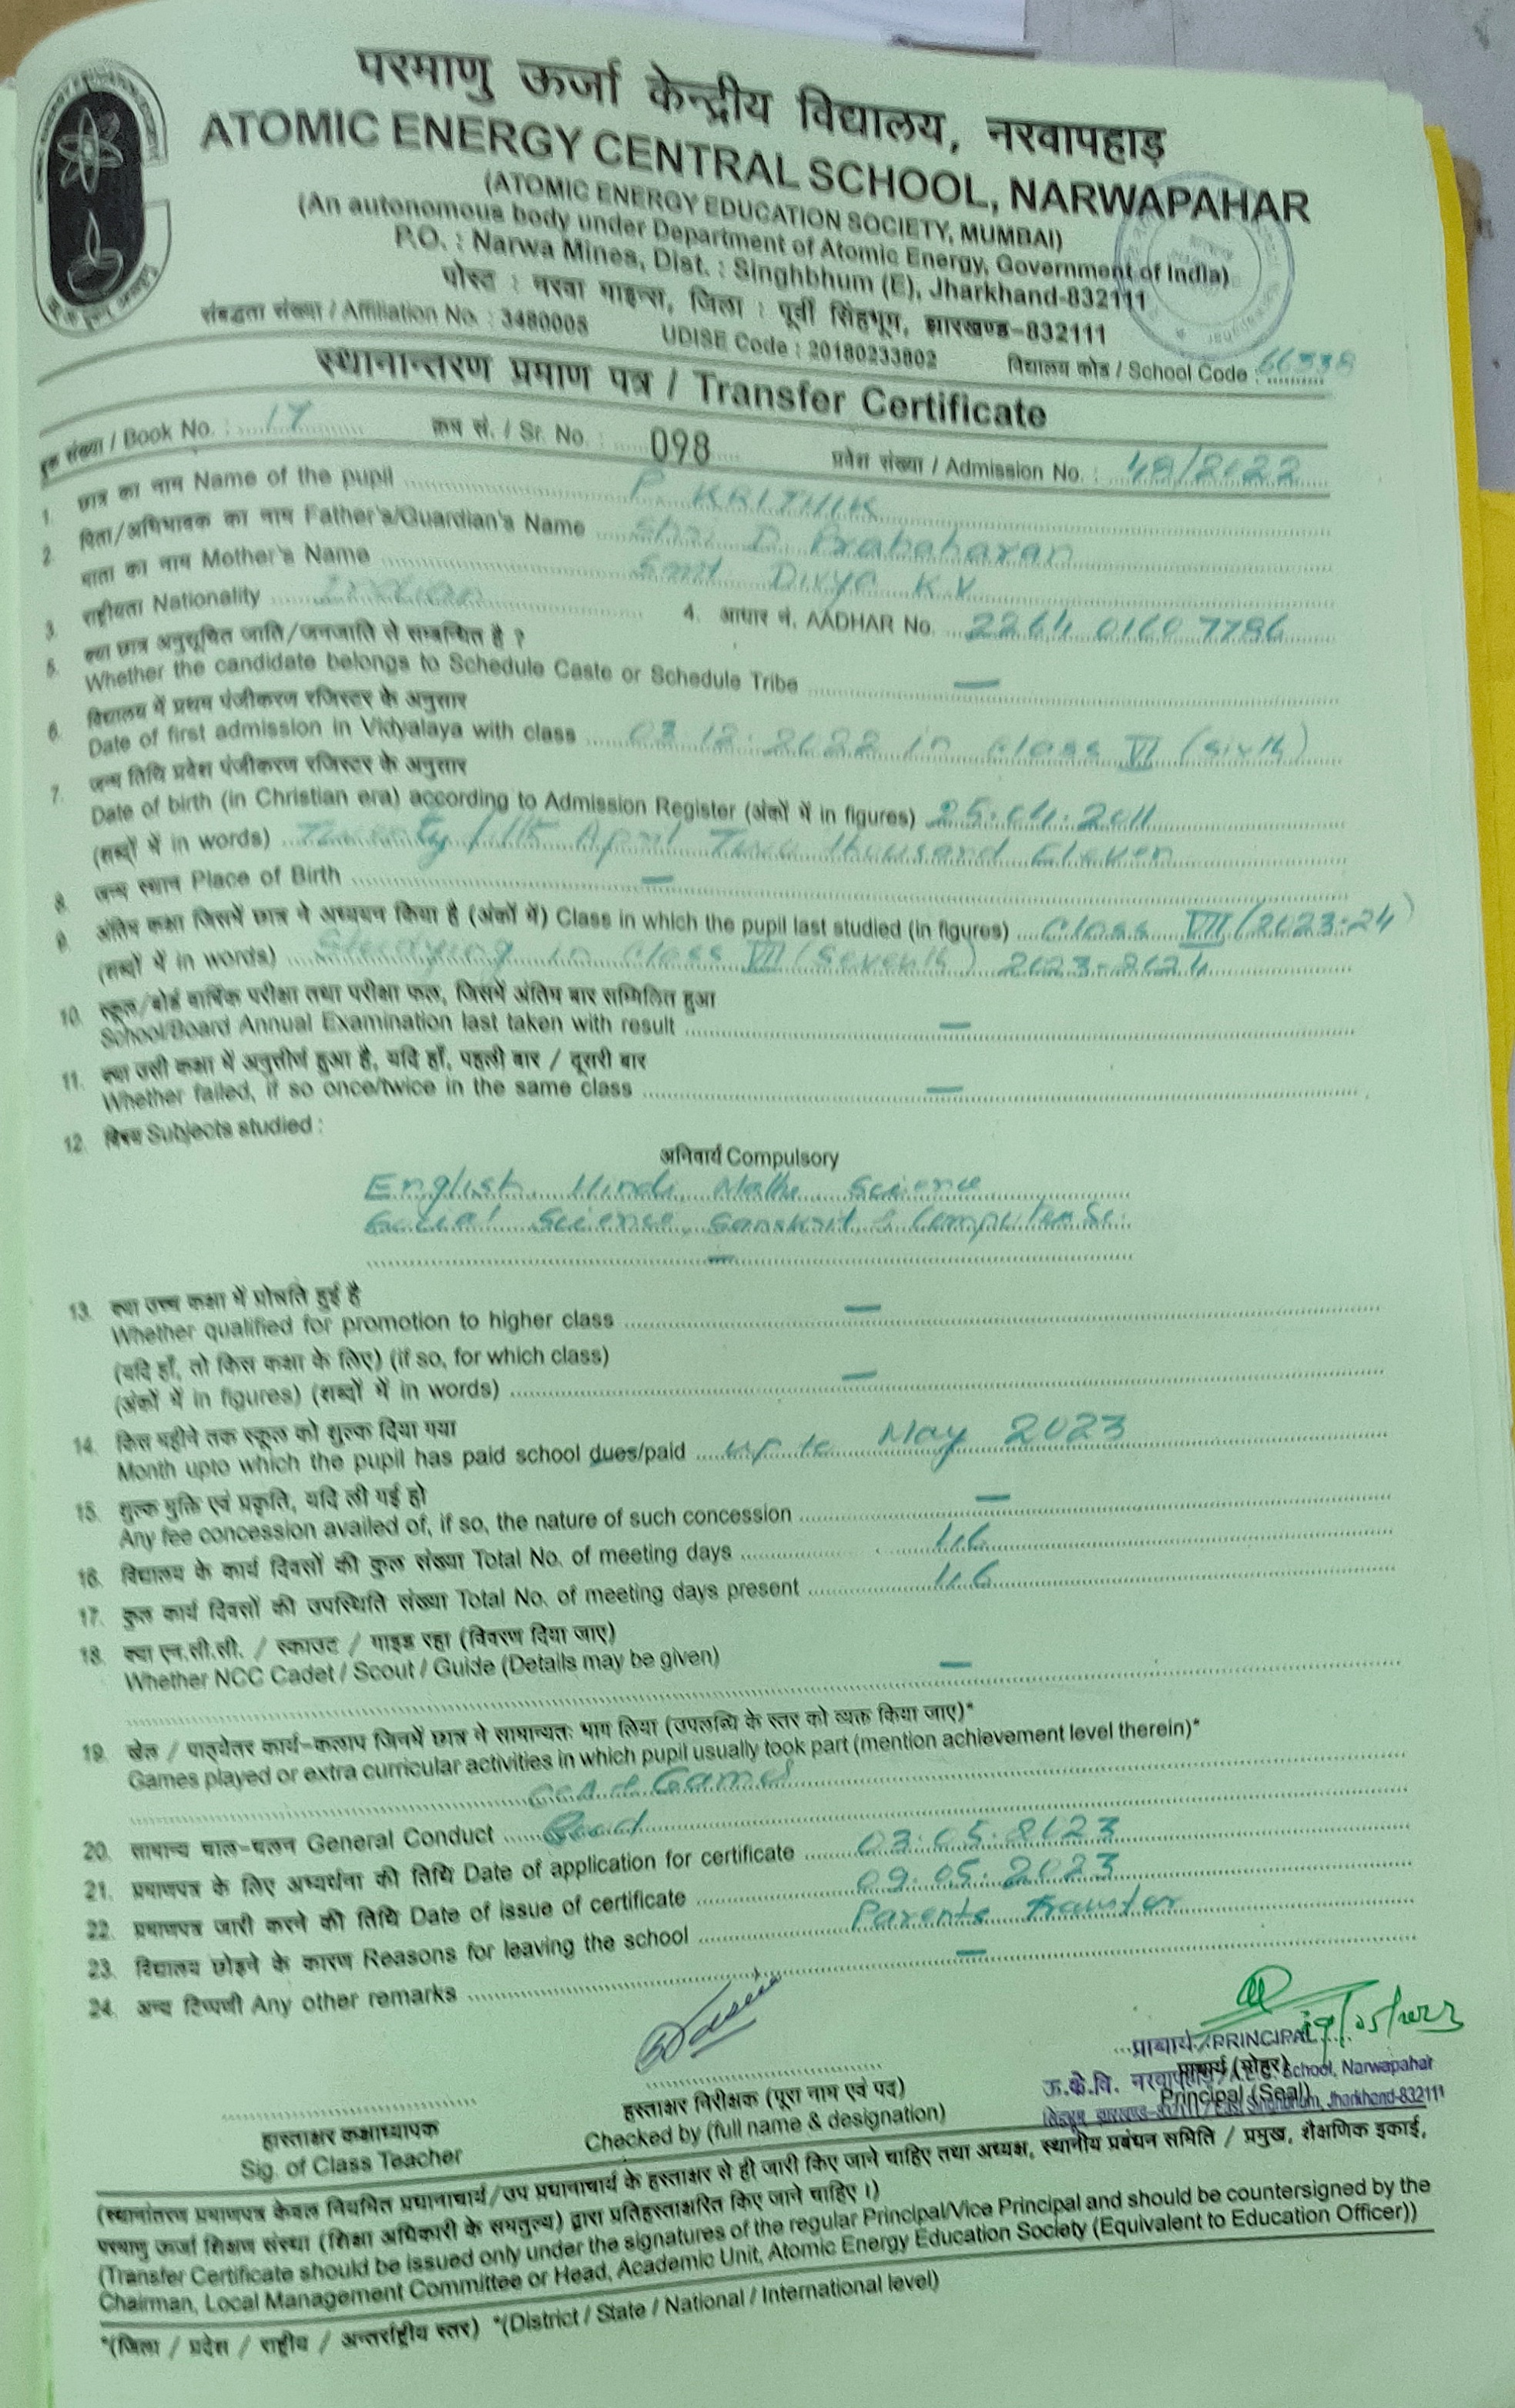 परमाणु ऊर्जा केन्द्रीय विद्यालय, नरवापहाड़
ATOMIC ENERGY CENTRAL SCHOOL, NARWAPAHAR
(ATOMIC ENERGY EDUCATION SOCIETY, MUMBAI)
(An autonomous body under Department of Atomic Energy, Government of India)
P.O. : Narwa Mines, Dist. : Singhbhum (E), Jharkhand-832111
पोस्ट : नरवा माइन्स, जिला : पूर्वी सिंहभूम, झारखण्ड-832111
संबद्धता संख्या / Affiliation No. : 3480005 UDISE Code : 20180233802 विद्यालय कोड / School Code : 66338
स्थानान्तरण प्रमाण पत्र / Transfer Certificate
बुक संख्या / Book No. : 17 क्रम सं. / Sr. No. : 098 प्रवेश संख्या / Admission No. : 48/2022
1. छात्र का नाम Name of the pupil P. KRITHIK
2. पिता/अभिभावक का नाम Father's/Guardian's Name Shri D. Prabaharan
माता का नाम Mother's Name Smt Divya K.V
3. राष्ट्रीयता Nationality Indian 4. आधार नं. AADHAR No. 2264 0160 7786
5. क्या छात्र अनुसूचित जाति/जनजाति से सम्बन्धित है ?
Whether the candidate belongs to Schedule Caste or Schedule Tribe —
6. विद्यालय में प्रथम पंजीकरण रजिस्टर के अनुसार
Date of first admission in Vidyalaya with class 03.12.2022 in class VI (sixth)
7. जन्म तिथि प्रवेश पंजीकरण रजिस्टर के अनुसार
Date of birth (in Christian era) according to Admission Register (अंकों में in figures) 25.04.2011
(शब्दों में in words) Twenty fifth April Two thousand Eleven
8. जन्म स्थान Place of Birth —
9. अंतिम कक्षा जिसमें छात्र ने अध्ययन किया है (अंकों में) Class in which the pupil last studied (in figures) Class VII (2023-24)
(शब्दों में in words) Studying in class VII (Seventh) 2023-2024
10. स्कूल/बोर्ड वार्षिक परीक्षा तथा परीक्षा फल, जिसमें अंतिम बार सम्मिलित हुआ
School/Board Annual Examination last taken with result —
11. क्या उसी कक्षा में अनुत्तीर्ण हुआ है, यदि हाँ, पहली बार / दूसरी बार
Whether failed, if so once/twice in the same class —
12. विषय Subjects studied :
अनिवार्य Compulsory
English, Hindi, Maths, Science
Social Science, Sanskrit & Computer Sc.
—
13. क्या उच्च कक्षा में प्रोन्नति हुई है
Whether qualified for promotion to higher class —
(यदि हाँ, तो किस कक्षा के लिए) (if so, for which class)
(अंकों में in figures) (शब्दों में in words) —
14. किस महीने तक स्कूल को शुल्क दिया गया
Month upto which the pupil has paid school dues/paid up to May 2023
15. शुल्क मुक्ति एवं प्रकृति, यदि ली गई हो
Any fee concession availed of, if so, the nature of such concession —
16. विद्यालय के कार्य दिवसों की कुल संख्या Total No. of meeting days
17. कुल कार्य दिवसों की उपस्थिति संख्या Total No. of meeting days present
18. क्या एन.सी.सी. / स्काउट / गाइड रहा (विवरण दिया जाए)
Whether NCC Cadet / Scout / Guide (Details may be given) —
19. खेल / पाठ्येतर कार्य-कलाप जिनमें छात्र ने सामान्यतः भाग लिया (उपलब्धि के स्तर को व्यक्त किया जाए)*
Games played or extra curricular activities in which pupil usually took part (mention achievement level therein)*
Games
20. सामान्य चाल-चलन General Conduct Good
21. प्रमाणपत्र के लिए अभ्यर्थना की तिथि Date of application for certificate 03.05.2023
22. प्रमाणपत्र जारी करने की तिथि Date of issue of certificate 09.05.2023
23. विद्यालय छोड़ने के कारण Reasons for leaving the school Parents Transfer
24. अन्य टिप्पणी Any other remarks —
प्राचार्य/PRINCIPAL
प्राचार्य (मोहर)
Principal (Seal)
School, Narwapahar
Jharkhand-832111
हस्ताक्षर निरीक्षक (पूरा नाम एवं पद)
Checked by (full name & designation)
हास्ताक्षर कक्षाध्यापक
Sig. of Class Teacher
(स्थानांतरण प्रमाणपत्र केवल नियमित प्रधानाचार्य/उप प्रधानाचार्य के हस्ताक्षर से ही जारी किए जाने चाहिए तथा अध्यक्ष, स्थानीय प्रबंधन समिति / प्रमुख, शैक्षणिक इकाई,
परमाणु ऊर्जा शिक्षण संस्था (शिक्षा अधिकारी के समतुल्य) द्वारा प्रतिहस्ताक्षरित किए जाने चाहिए ।)
(Transfer Certificate should be issued only under the signatures of the regular Principal/Vice Principal and should be countersigned by the
Chairman, Local Management Committee or Head, Academic Unit, Atomic Energy Education Society (Equivalent to Education Officer))
*(जिला / प्रदेश / राष्ट्रीय / अन्तर्राष्ट्रीय स्तर) *(District / State / National / International level)